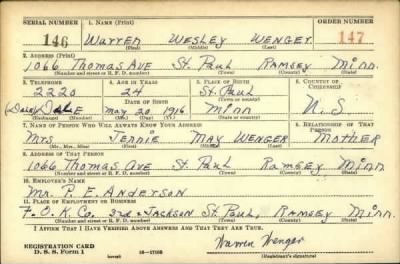 SERIAL NUMBER 1. NAME (Print) ORDER NUMBER
146 WARREN WESLEY WENGER 147
(First) (Middle) (Last)
2. ADDRESS (Print)
1066 THOMAS AVE ST. PAUL RAMSEY MINN.
(Number and street or R. F. D. number) (Town) (County) (State)
3. TELEPHONE 4. AGE IN YEARS 5. PLACE OF BIRTH 6. COUNTRY OF CITIZENSHIP
2220 24 ST. PAUL
DATE OF BIRTH (Town or county)
DALE MAY 20, 1916 MINN U.S.
(Exchange) (Number) (Mo.) (Day) (Yr.) (State or country)
7. NAME OF PERSON WHO WILL ALWAYS KNOW YOUR ADDRESS 8. RELATIONSHIP OF THAT PERSON
MRS. JENNIE MAY WENGER MOTHER
(Mr., Mrs., Miss) (First) (Middle) (Last)
9. ADDRESS OF THAT PERSON
1066 THOMAS AVE ST. PAUL RAMSEY MINN
(Number and street or R. F. D. number) (Town) (County) (State)
10. EMPLOYER'S NAME
MR. P. E. ANDERSON
11. PLACE OF EMPLOYMENT OR BUSINESS
F.O.K. CO. 3RD & JACKSON ST. PAUL, RAMSEY MINN.
(Number and street or R. F. D. number) (Town) (County) (State)
I AFFIRM THAT I HAVE VERIFIED ABOVE ANSWERS AND THAT THEY ARE TRUE.
REGISTRATION CARD Warren Wenger
D. S. S. Form 1 (over) (Registrant's signature)